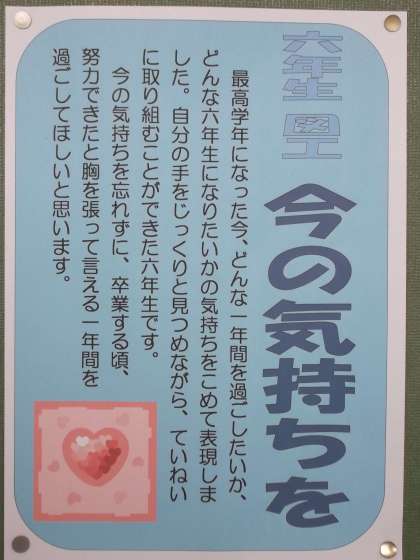 六年生 図工
今の気持ちを
最高学年になった今、どんな一年間を過ごしたいか、
どんな六年生になりたいかの気持ちをこめて表現しま
した。自分の手をじっくりと見つめながら、ていねい
に取り組むことができた六年生です。
今の気持ちを忘れずに、卒業する頃、
努力できたと胸を張って言える一年間を
過ごしてほしいと思います。